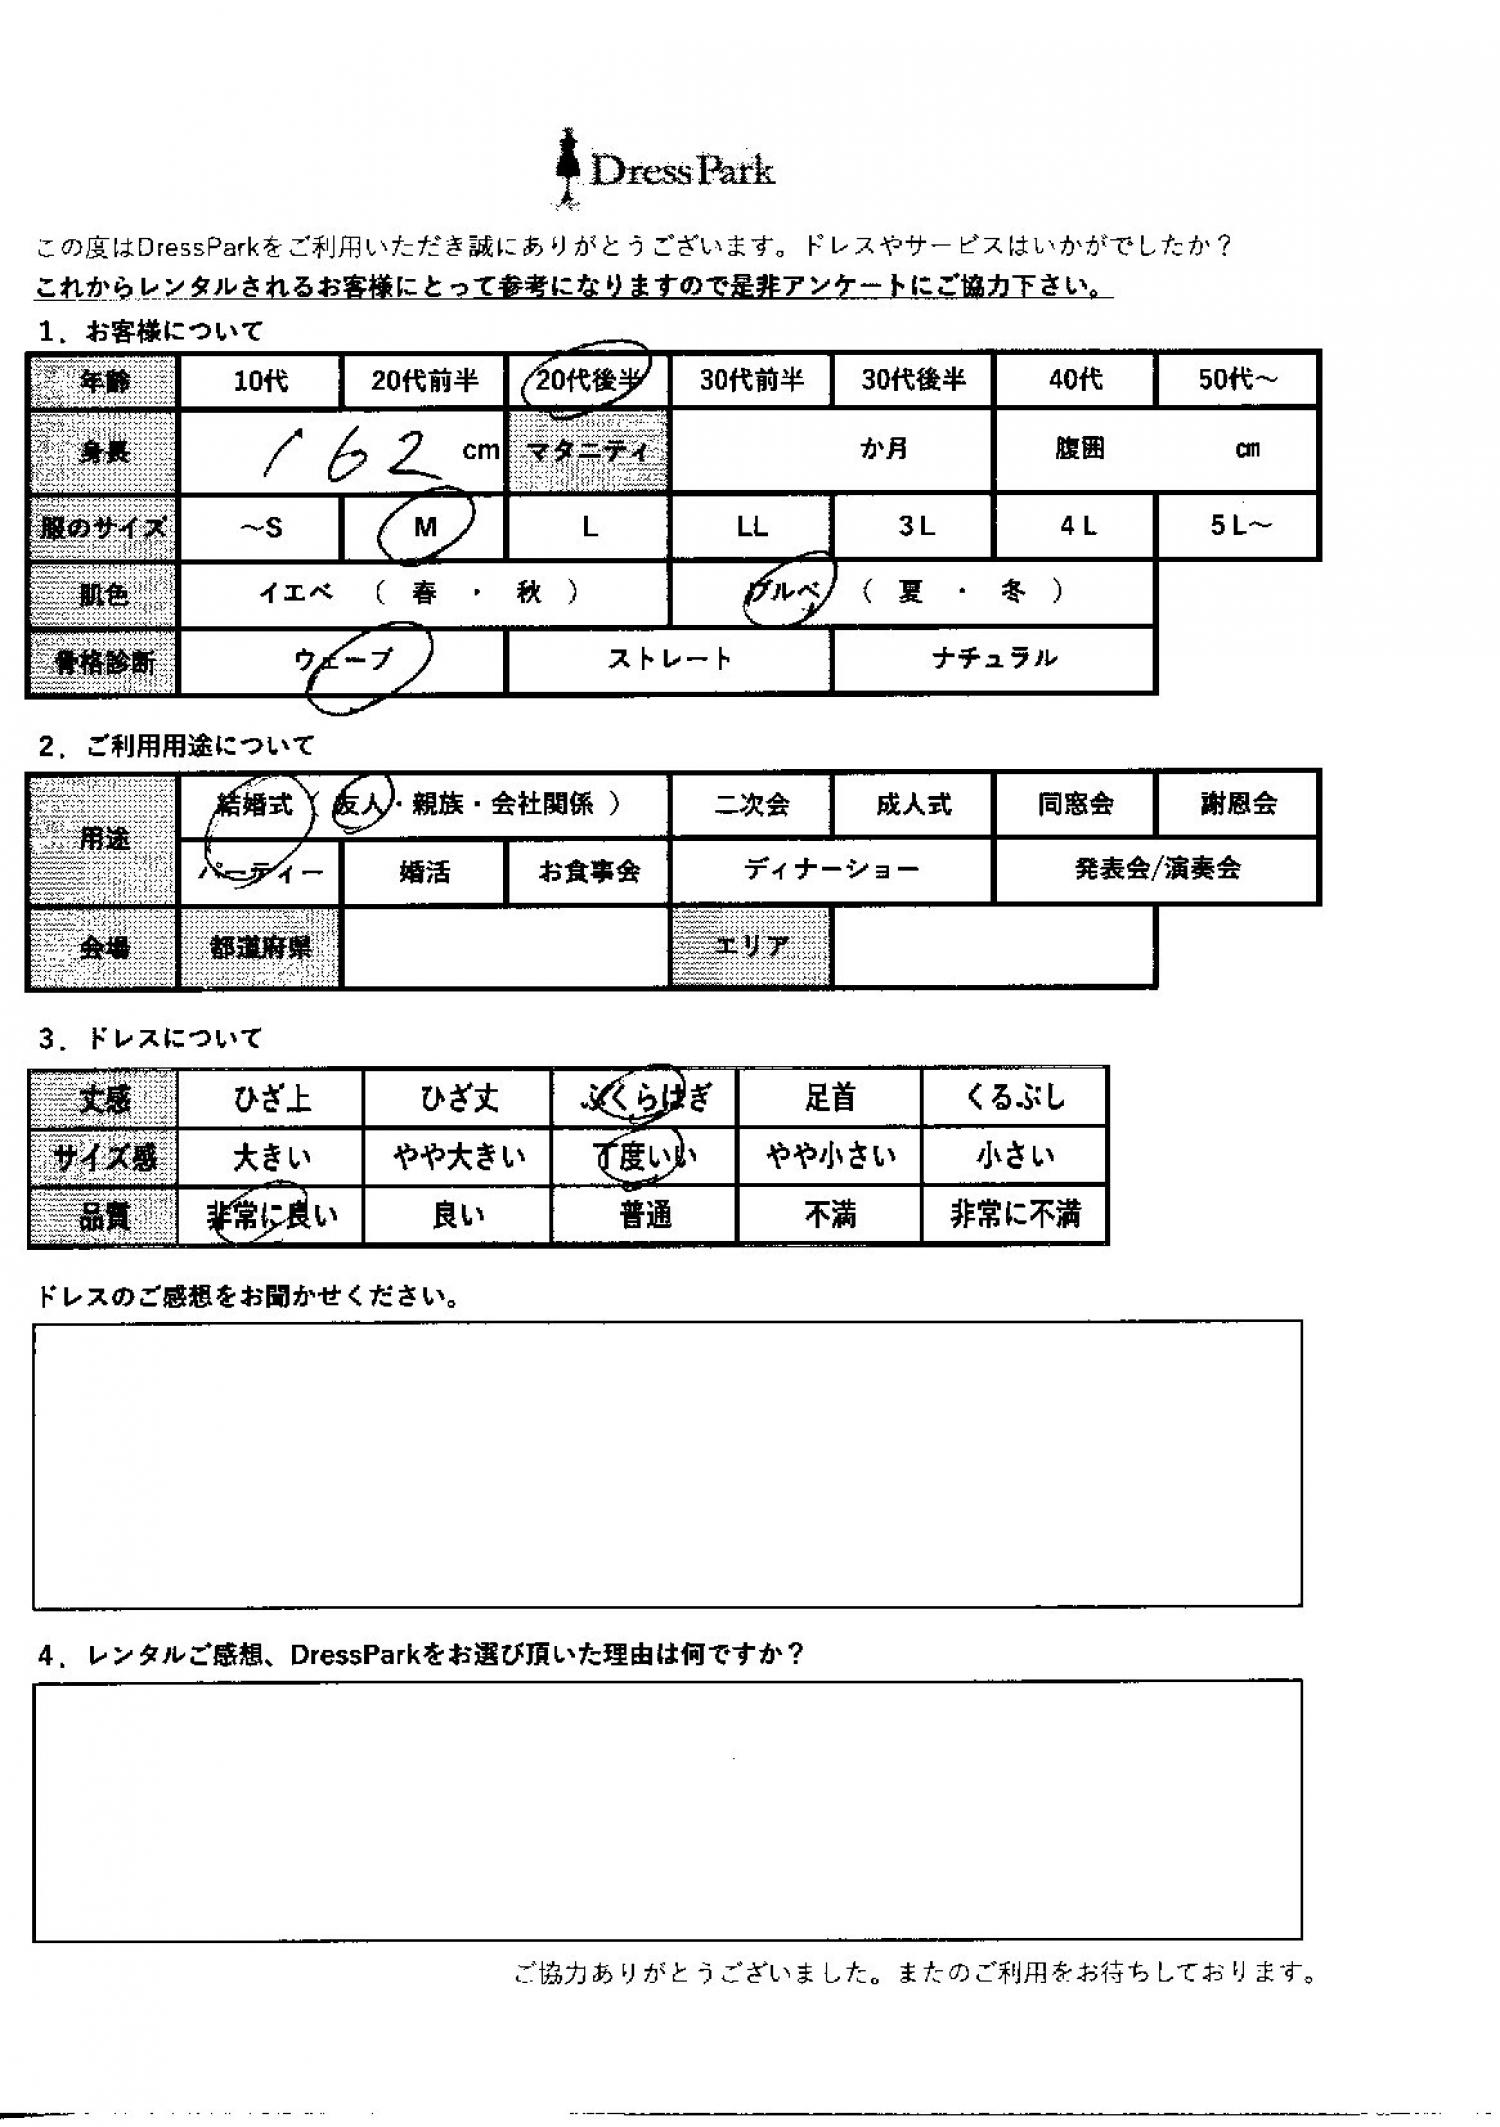 DressPark
この度はDressParkをご利用いただき誠にありがとうございます。ドレスやサービスはいかがでしたか？
これからレンタルされるお客様にとって参考になりますので是非アンケートにご協力下さい。
1．お客様について
年齢 10代 20代前半 20代後半 30代前半 30代後半 40代 50代～
身長 162 cm マタニティ か月 腹囲 ㎝
服のサイズ ～S M L LL 3L 4L 5L～
肌色 イエベ （ 春 ・ 秋 ） ブルベ （ 夏 ・ 冬 ）
骨格診断 ウェーブ ストレート ナチュラル
2．ご利用用途について
用途 結婚式（友人・親族・会社関係） 二次会 成人式 同窓会 謝恩会
パーティー 婚活 お食事会 ディナーショー 発表会/演奏会
会場 都道府県 エリア
3．ドレスについて
丈感 ひざ上 ひざ丈 ふくらはぎ 足首 くるぶし
サイズ感 大きい やや大きい 丁度いい やや小さい 小さい
品質 非常に良い 良い 普通 不満 非常に不満
ドレスのご感想をお聞かせください。
4．レンタルご感想、DressParkをお選び頂いた理由は何ですか？
ご協力ありがとうございました。またのご利用をお待ちしております。